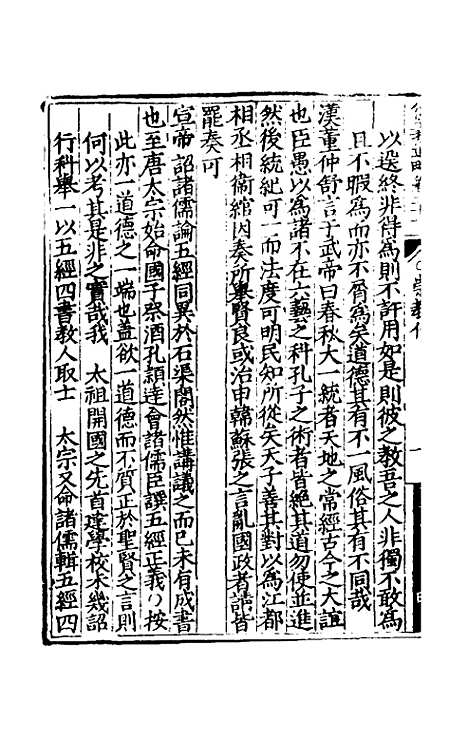 以邀終非得為則不許用如是則彼之教吾之人非獨不敢為
且不暇為而亦不屑為矣道德其有不一風俗其有不同哉
漢董仲舒言于武帝曰春秋大一統者天地之常經古今之大誼
也臣愚以為諸不在六藝之科孔子之術者皆絕其道勿使並進
然後統紀可一而法度可明民知所從矣天子善其對以為江都
相丞相衞綰因奏所舉賢良或治申韓蘇張之言亂國政者請皆
罷奏可
宣帝詔諸儒論五經同異於石渠閣然惟講議之而已未有成書
也至唐太宗始命國子祭酒孔穎達會諸儒臣譔五經正義以按
此亦一道德之一端也蓋欲一道德而不質正於聖賢之言則
何以考其是非之實哉我　太祖開國之先首建學校未幾詔
行科舉一以五經四書教人取士　太宗又命諸儒輯五經四